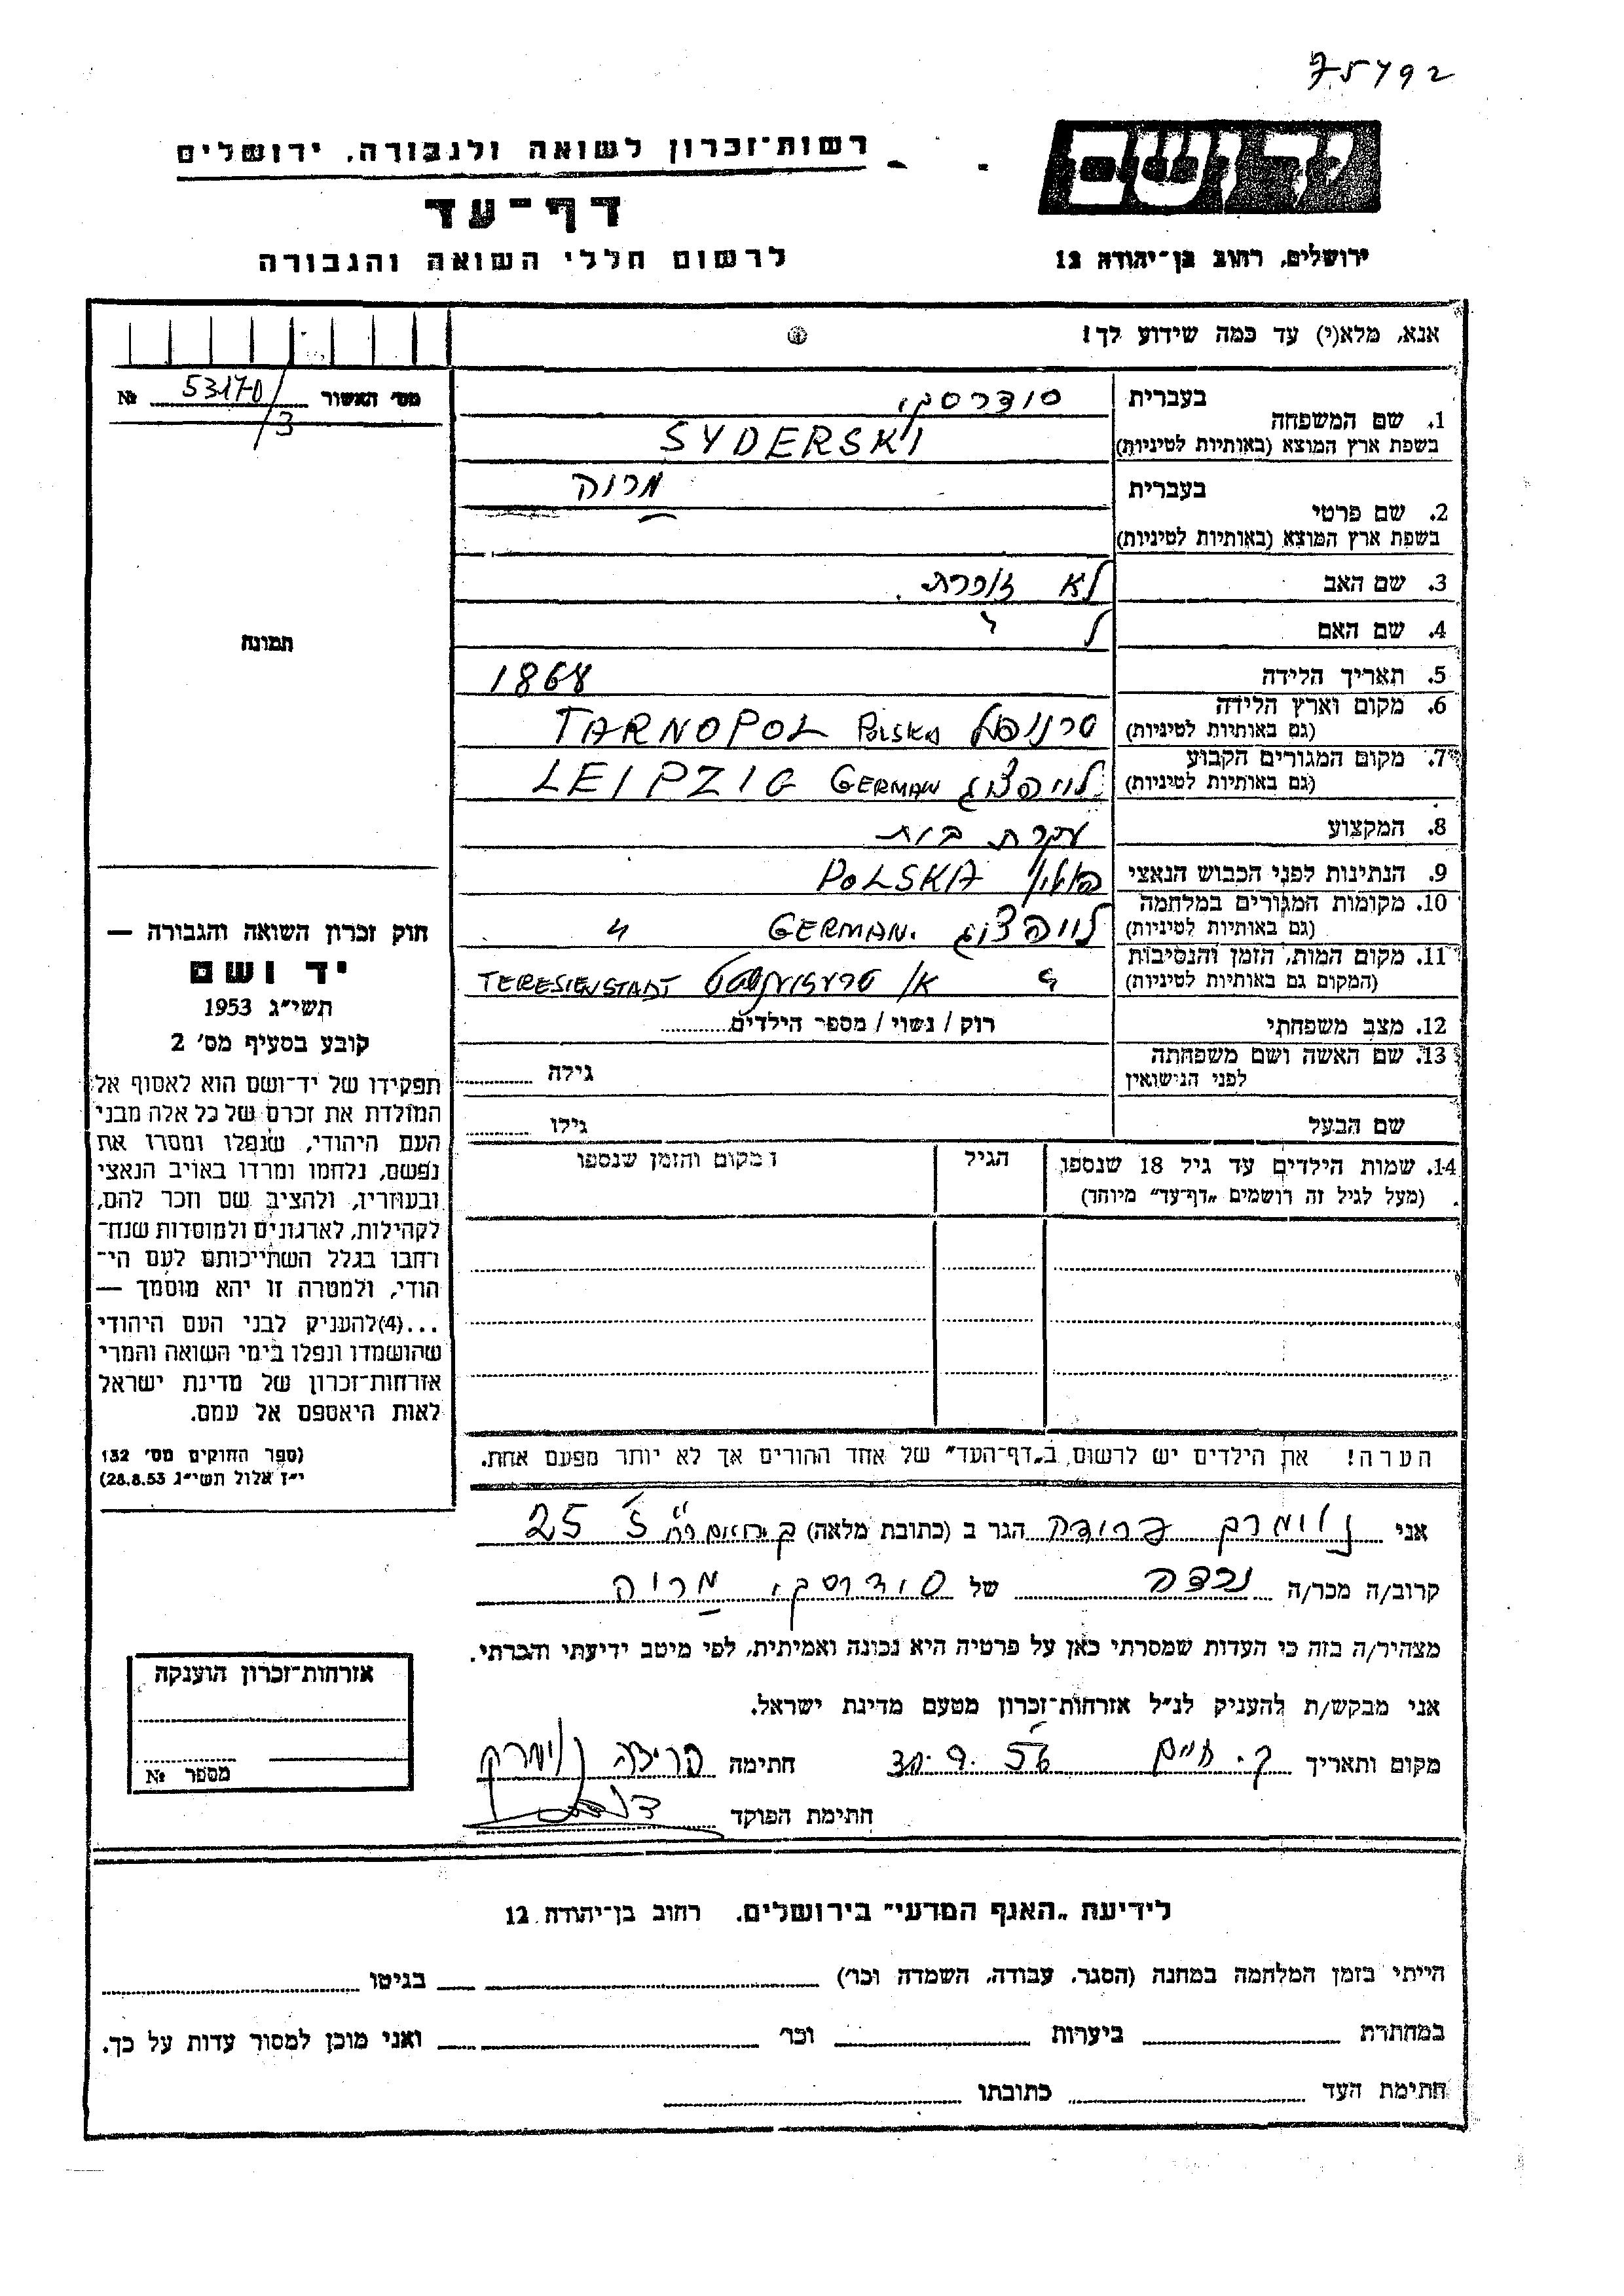 75792
יד ושם
רשות־זכרון לשואה ולגבורה, ירושלים
דף־עד
לרשום חללי השואה והגבורה
ירושלים, רחוב בן־יהודה 12
אנא, מלא(י) עד כמה שידוע לך!
מס׳ האשור 53170/3 №
1. שם המשפחה
בעברית סידרסקי
בשפת ארץ המוצא (באותיות לטיניות) SYDERSKI
2. שם פרטי
בעברית מריה
בשפת ארץ המוצא (באותיות לטיניות)
3. שם האב לא זוכרת.
4. שם האם
5. תאריך הלידה 1868
6. מקום וארץ הלידה
(גם באותיות לטיניות) טרנופול POLSKA TARNOPOL
7. מקום המגורים הקבוע
(גם באותיות לטיניות) לייפציג GERMAN LEIPZIG
8. המקצוע עקרת בית
9. הנתינות לפני הכבוש הנאצי פולין POLSKA
10. מקומות המגורים במלחמה
(גם באותיות לטיניות) לייפציג GERMAN.
11. מקום המות, הזמן והנסיבות
(המקום גם באותיות לטיניות) TERESIENSTADT
12. מצב משפחתי רוק / נשוי / מספר הילדים
13. שם האשה ושם משפחתה
לפני הנישואין גילה
שם הבעל גילו
14. שמות הילדים עד גיל 18 שנספו הגיל מקום והזמן שנספו
(מעל לגיל זה רושמים „דף־עד״ מיוחד)
הערה! את הילדים יש לרשום ב„דף־העד״ של אחד ההורים אך לא יותר מפעם אחת.
תמונה
חוק זכרון השואה והגבורה —
יד ושם
תשי״ג 1953
קובע בסעיף מס׳ 2
תפקידו של יד־ושם הוא לאסוף אל
המולדת את זכרם של כל אלה מבני
העם היהודי, שנפלו ומסרו את
נפשם, נלחמו ומרדו באויב הנאצי
ובעוזריו, ולהציב שם וזכר להם,
לקהילות, לארגונים ולמוסדות שנח־
רחבו בגלל השתייכותם לעם הי־
הודי, ולמטרה זו יהא מוסמך —
...(4)להעניק לבני העם היהודי
שהושמדו ונפלו בימי השואה והמרי
אזרחות־זכרון של מדינת ישראל
לאות היאספם אל עמם.
(ספר החוקים מס׳ 132
י״ז אלול תשי״ג 28.8.53)
אני נוימרק פרידה הגר ב (כתובת מלאה) 25
קרוב/ה מכר/ה נכדה של סידרסקי מריה
מצהיר/ה בזה כי העדות שמסרתי כאן על פרטיה היא נכונה ואמיתית, לפי מיטב ידיעתי והכרתי.
אני מבקש/ת להעניק לנ״ל אזרחות־זכרון מטעם מדינת ישראל.
מקום ותאריך ק. חיים 30.9.56 חתימה פרידה נוימרק
חתימת הפוקד
אזרחות־זכרון הוענקה
מספר №
לידיעת „האגף המדעי״ בירושלים. רחוב בן־יהודה 12
הייתי בזמן המלחמה במחנה (הסגר, עבודה, השמדה וכו׳) בגיטו
במחתרת ביערות וכו׳ ואני מוכן למסור עדות על כך.
חתימת העד כתובתו